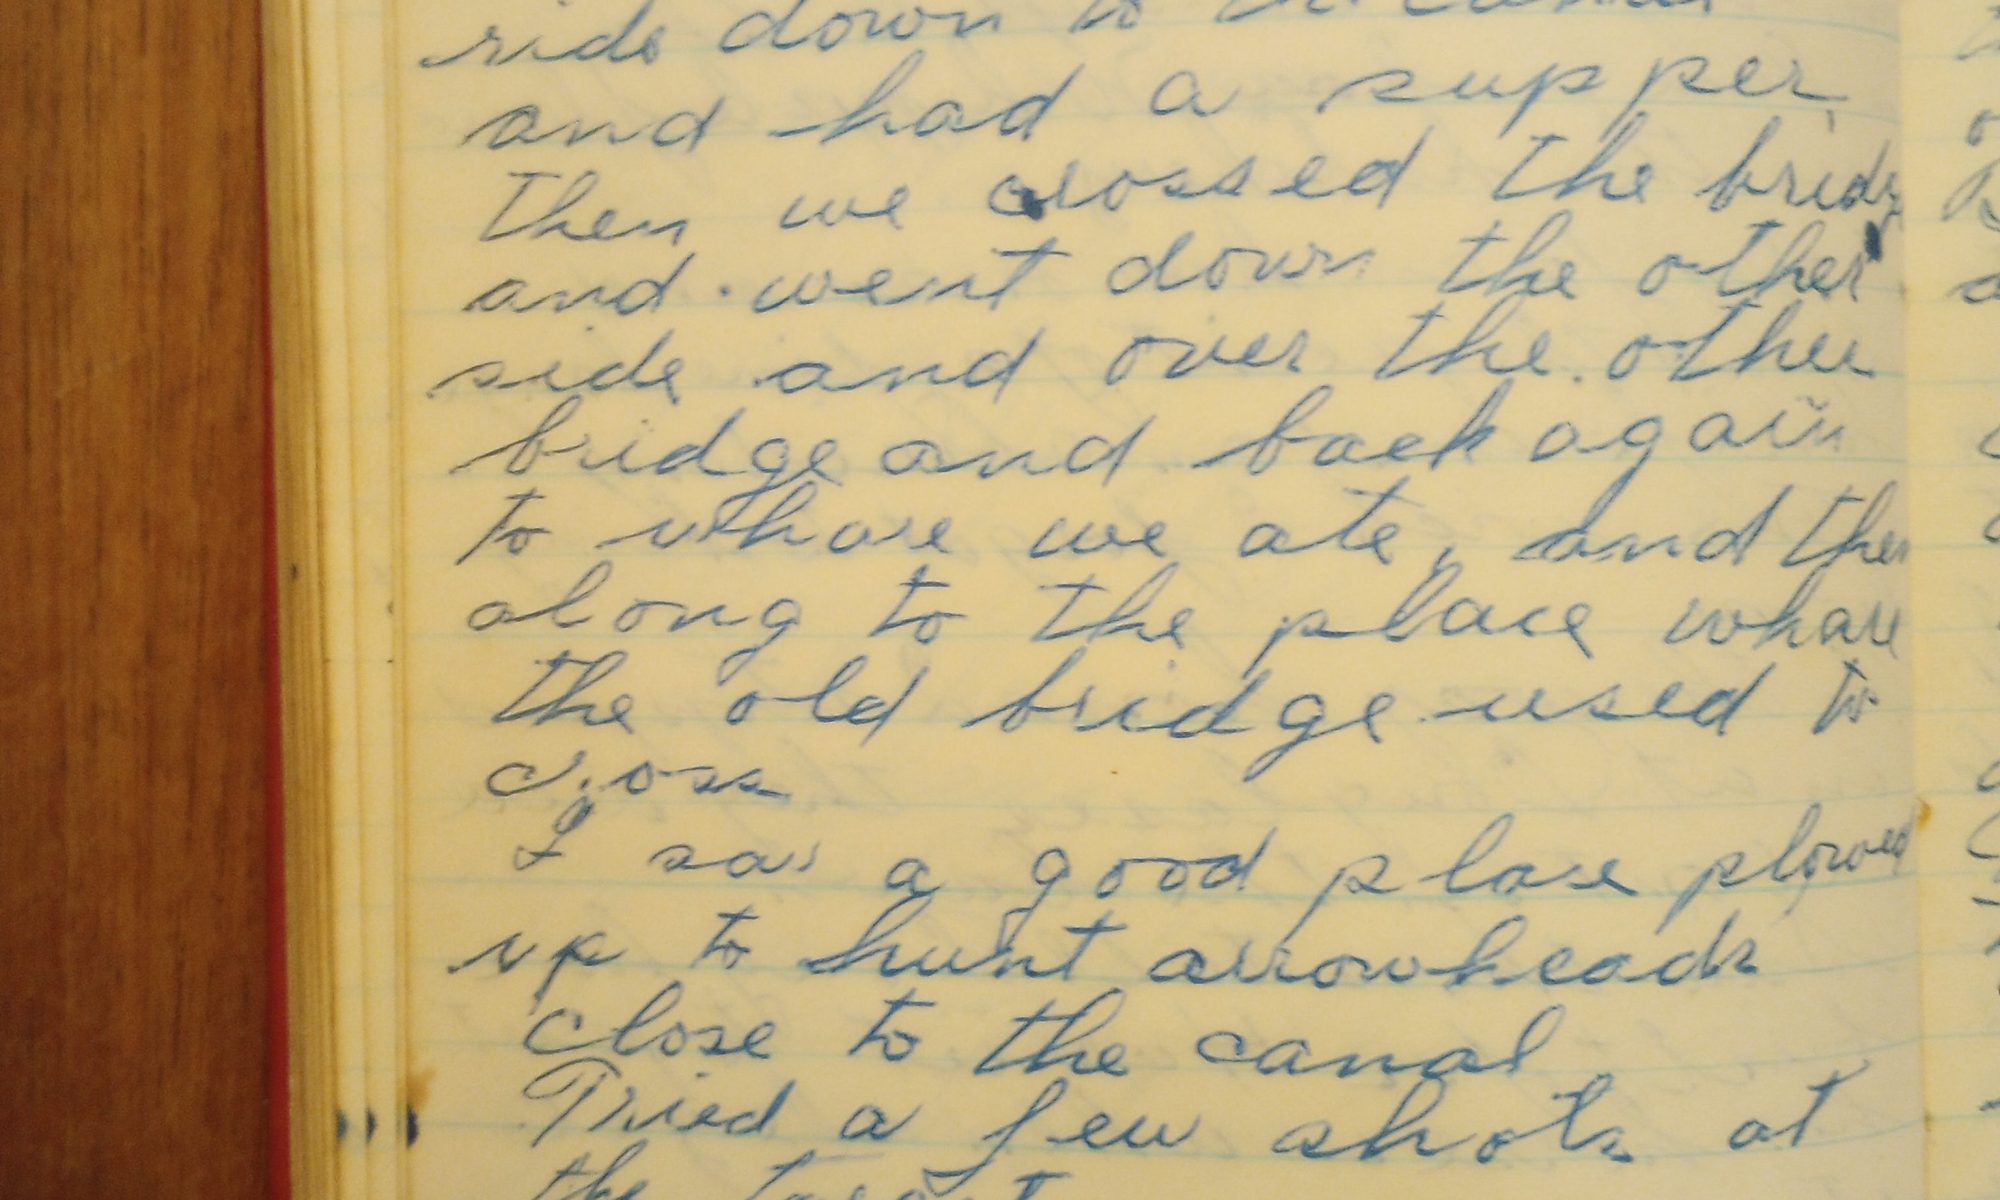 ride down to the canal
and had a supper
Then we crossed the bridg
and went down the other
side and over the other
bridge and back again
to whare we ate, and then
along to the place whare
the old bridge used to
cross
I saw a good place plowed
up to hunt arrowheads
close to the canal
Tried a few shots at
the target